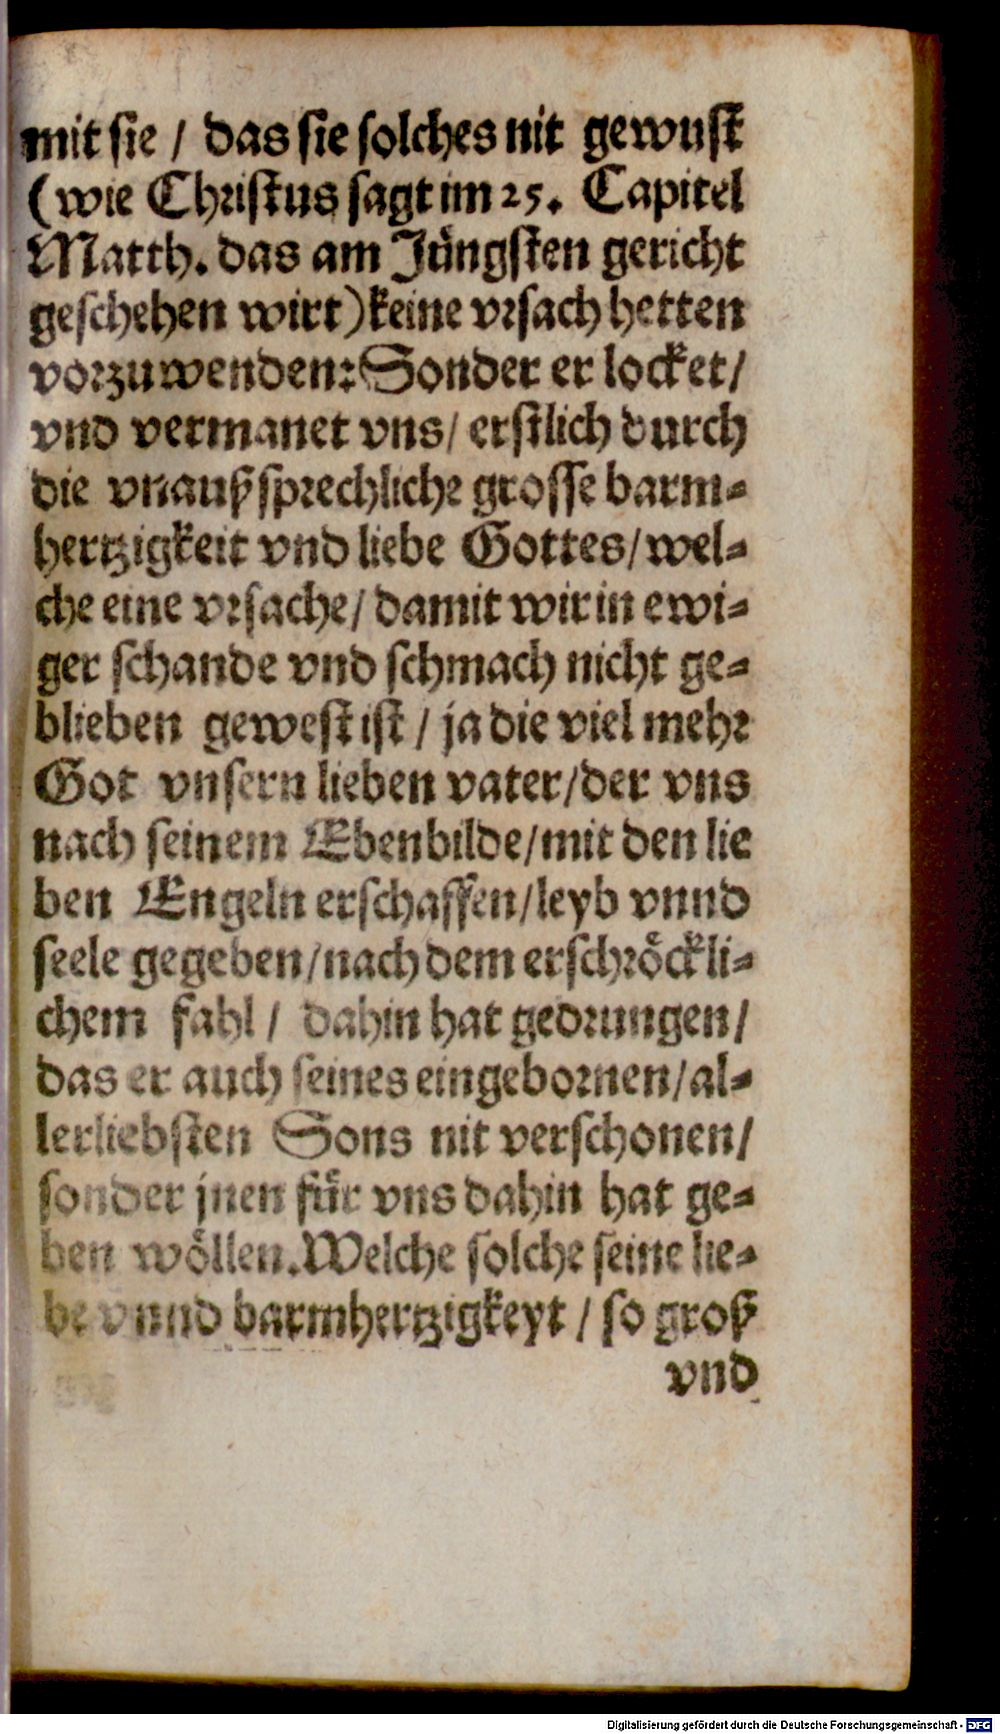 mit sie / das sie solches nit gewust
(wie Christus sagt im 25. Capitel
Matth. das am Jüngsten gericht
geschehen wirt) keine vrsach hetten
vorzuwenden: Sonder er locket /
vnd vermanet vns / erstlich durch
die vnaußsprechliche grosse barm-
hertzigkeit vnd liebe Gottes / wel-
che eine vrsache / damit wir in ewi-
ger schande vnd schmach nicht ge-
blieben gewest ist / ja die viel mehr
Got vnsern lieben vater / der vns
nach seinem Ebenbilde / mit den lie
ben Engeln erschaffen / leyb vnnd
seele gegeben / nach dem erschröckli-
chem fahl / dahin hat gedrungen /
das er auch seines eingebornen / al-
lerliebsten Sons nit verschonen /
sonder jnen für vns dahin hat ge-
ben wöllen. Welche solche seine lie-
be vnnd barmhertzigkeyt / so groß
vnd
Digitalisierung gefördert durch die Deutsche Forschungsgemeinschaft - DFG